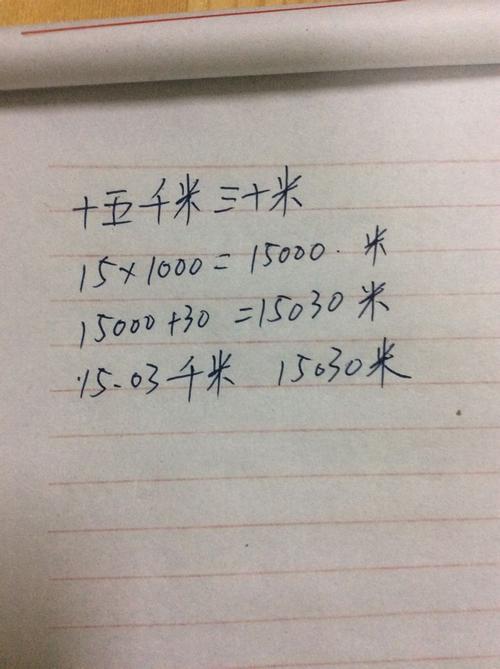 十五千米三十米
15×1000=15000.米
15000+30=15030米
15.03千米 15030米